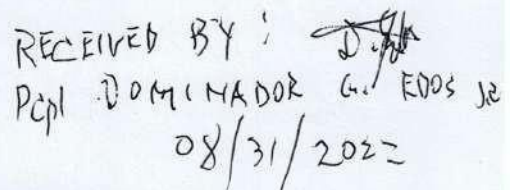 RECEIVED BY :
PCpl DOMINADOR G. EDOS JR
08/31/2022